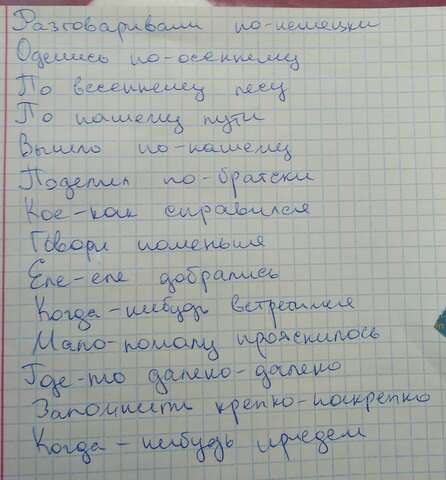 Разговаривали по-немецки
Оделись по-осеннему
По весеннему лесу
По нашему пути
Вышло по-нашему
Поделил по-братски
Кое-как справился
Говори поменьше
Еле-еле добрались
Когда-нибудь встретимся
Мало-помалу прояснилось
Где-то далеко-далеко
Запомнить крепко-накрепко
Когда-нибудь приедем